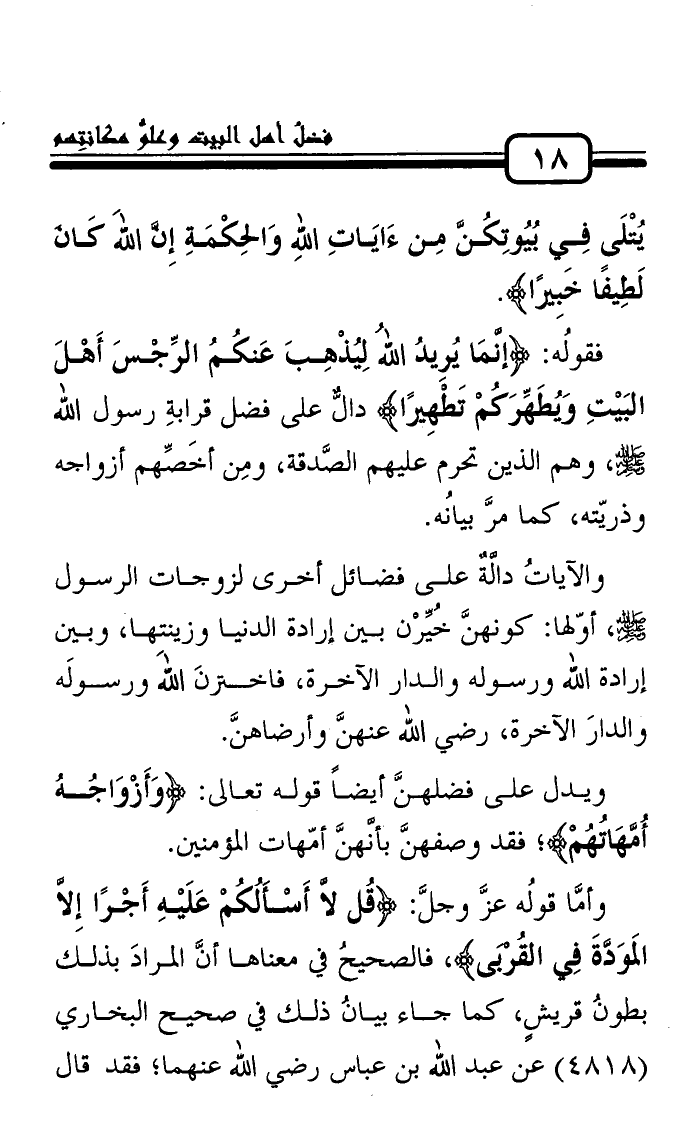 فضلُ أهل البيت وعلوُّ مكانتِهم
١٨
يُتْلَى فِـي بُيُوتِكُـنَّ مِـن ءَايَـاتِ اللهِ وَالحِكْمَـةِ إِنَّ اللهَ كَـانَ
لَطِيفًا خَبِيرًا﴾.
فقولُه: ﴿إِنَّمَا يُرِيدُ اللهُ لِيُذْهِـبَ عَنكُـمُ الرِّجْـسَ أَهْـلَ
البَيْتِ وَيُطَهِّرَكُمْ تَطْهِيرًا﴾ دالٌّ على فضل قرابةِ رسول الله
ﷺ، وهم الذين تحرم عليهم الصَّدقة، ومِن أخَصِّهم أزواجه
وذريّته، كما مرَّ بيانُه.
والآياتُ دالَّةٌ علـى فضـائل أخـرى لزوجـات الرسـول
ﷺ، أوّلها: كونهنَّ خُيِّرْن بـين إرادة الدنيـا وزينتِهـا، وبـين
إرادة الله ورسـوله والـدار الآخـرة، فـاختـرنَ اللهَ ورسـولَه
والدارَ الآخرة، رضي الله عنهنَّ وأرضاهنَّ.
ويـدل علـى فضلهـنَّ أيضـاً قولـه تعـالى: ﴿وَأَزْوَاجُـهُ
أُمَّهَاتُهُمْ﴾؛ فقد وصفهنَّ بأنَّهنَّ أمّهات المؤمنين.
وأمَّا قولُه عزَّ وجلَّ: ﴿قُل لاَّ أَسْـأَلُكُمْ عَلَيْـهِ أَجْـرًا إِلاَّ
المَوَدَّةَ فِي القُرْبَى﴾، فالصحيحُ في معناهـا أنَّ المـرادَ بذلـك
بطونُ قريشٍ، كما جـاء بيـانُ ذلـك في صحيـح البخـاري
(٤٨١٨) عن عبد الله بن عباس رضي الله عنهما؛ فقد قال